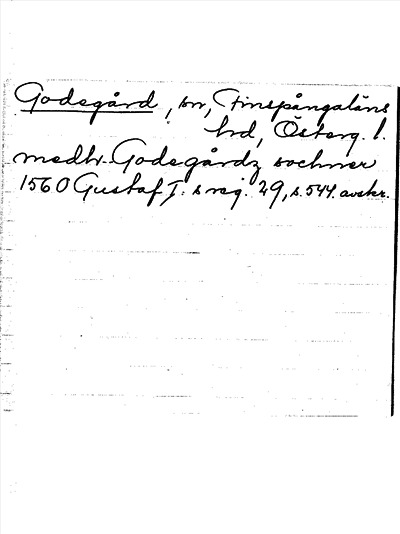 Godegård, sn, Finspångaläns
hd, Österg. l.
medh. Godegårdz sochner
1560 Gustaf I:s reg. 29, s. 544. avskr.